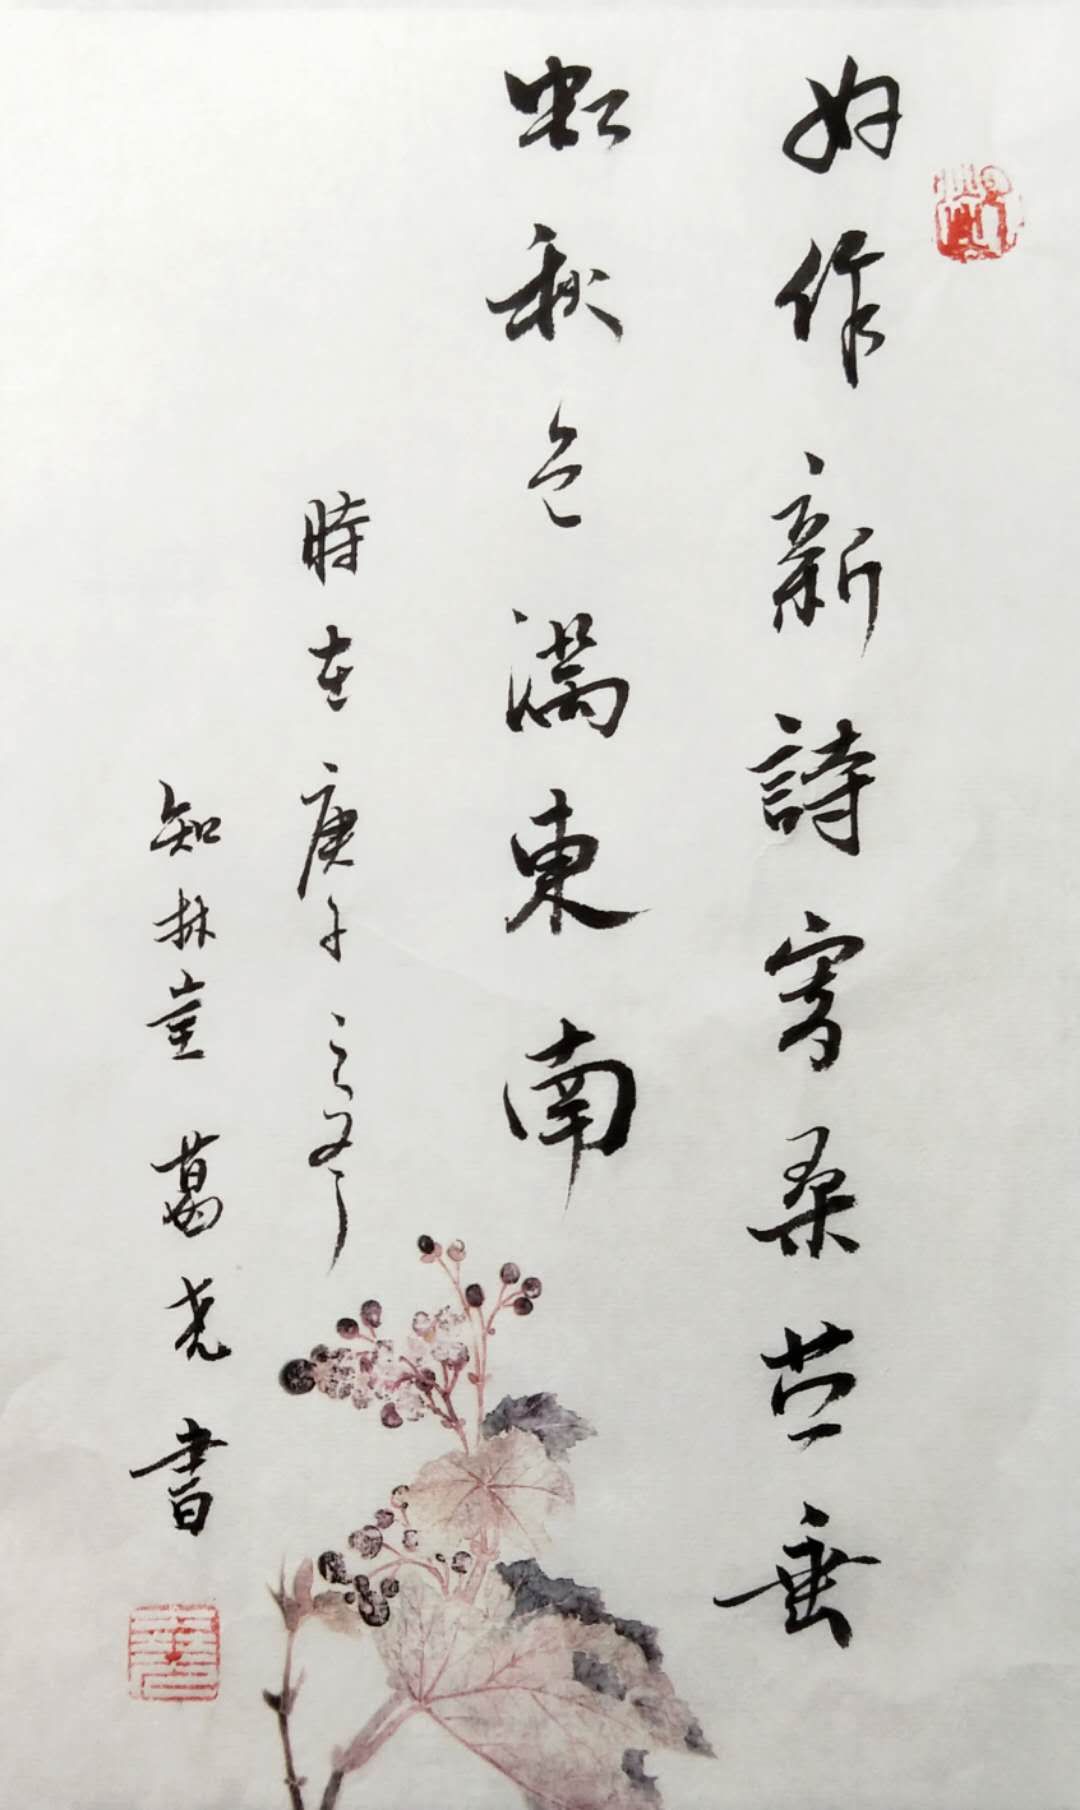 好作新詩寄桑苎垂
虹秋色滿東南
時在庚子之
知林堂 葛尧 書